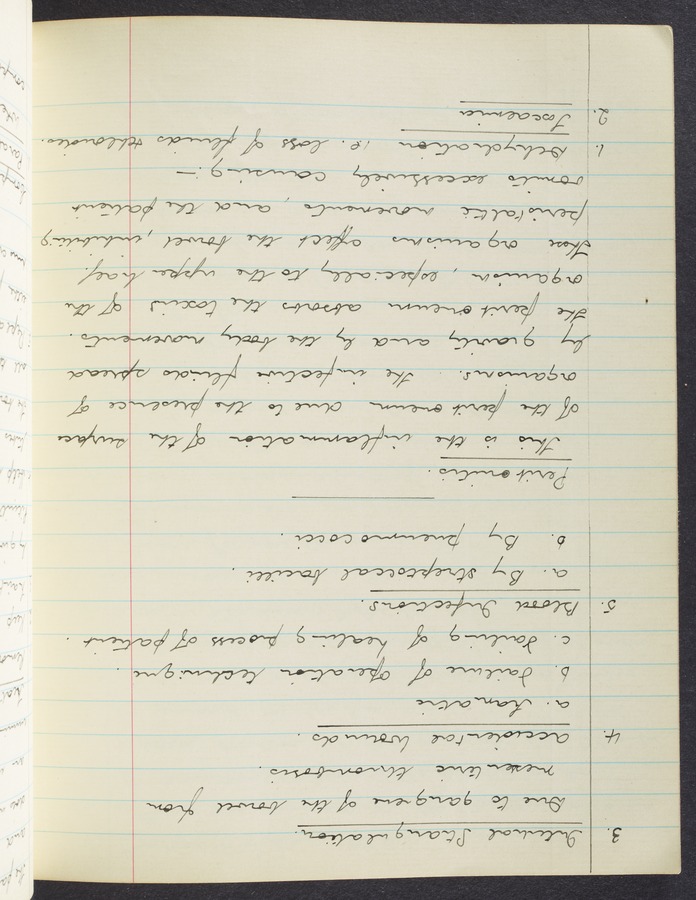 3. Internal Strangulation.
Due to gangrene of the bowel from
mesenteric thrombosis.
4. Accidental Wounds.
a.
b. Failure of operation technique.
c. Failing of healing process of patient.
5. Blood Infections.
a. By streptoccal bacilli.
b. By pneumococci.
Peritonitis.
This is the inflammation of the surface
of the peritoneum due to the presence of
organisms. The infective fluids spread
by gravity and by the body movements.
The peritoneum absorbs the toxins of the
organism, especially to the upper half.
Those organisms affect the bowel, inhibiting
peristaltic movements, and the patient
vomits excessively causing:-
1. Dehydration i.e. loss of fluids +
2. Toxaemia